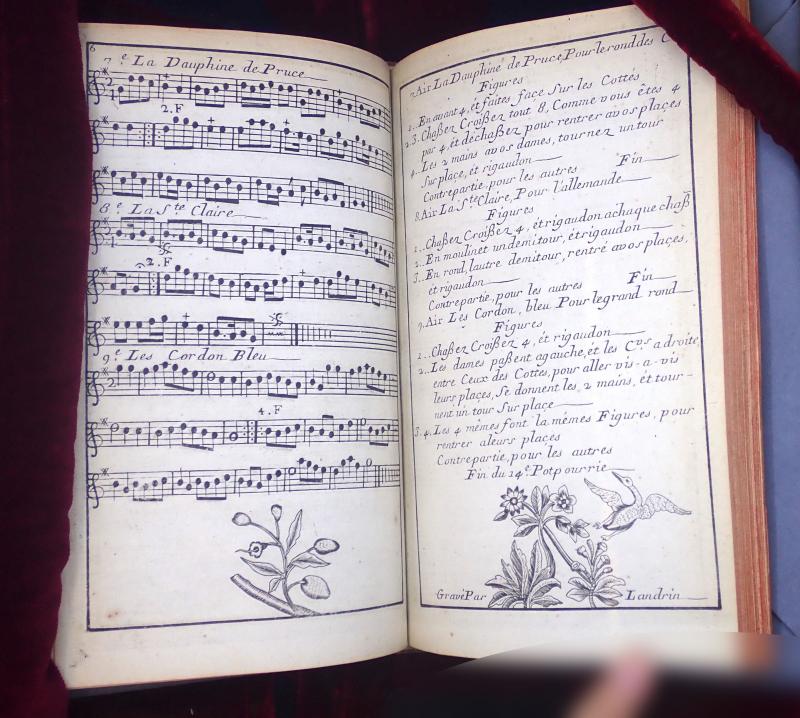 6
7.e La Dauphine de Pruce
2.F
8.e La S.te Claire
2.F
9.e Les Cordon Bleu
4.F
7 Air La Dauphine de Pruce, Pour le rond des C
Figures
1.. En avant 4, et faites face Sur les Cottés
2.3. Chaßez Croißez tout 8, Comme vous êtes 4
par 4, et déchaßez pour rentrer avos places
4.. Les 2 mains avos dames, tournez un tour
Sur place, et rigaudon
Contrepartie, pour les autres Fin
8. Air La S.te Claire, Pour l'allemande
Figures
1.. Chaßez Croißez 4, et rigaudon achaque chaß
2.. En moulinet un demi tour, et rigaudon
3.. En rond, lautre demi tour, rentré avos places,
et rigaudon
Contrepartie, pour les autres Fin
9. Air Les Cordon, bleu Pour le grand rond
Figures
1.. Chaßez Croißez 4, et rigaudon
2.. Les dames paßent agauche, et les C.rs a droite,
entre Ceux des Cottés, pour aller vis-a-vis
leurs places, Se donnent les 2 mains, et tour-
nent un tour Sur place
3.4. Les 4 mêmes font la mêmes Figures, pour
rentrer aleurs places
Contrepartie, pour les autres
Fin du 24.e Potpourrie
Gravé Par Landrin